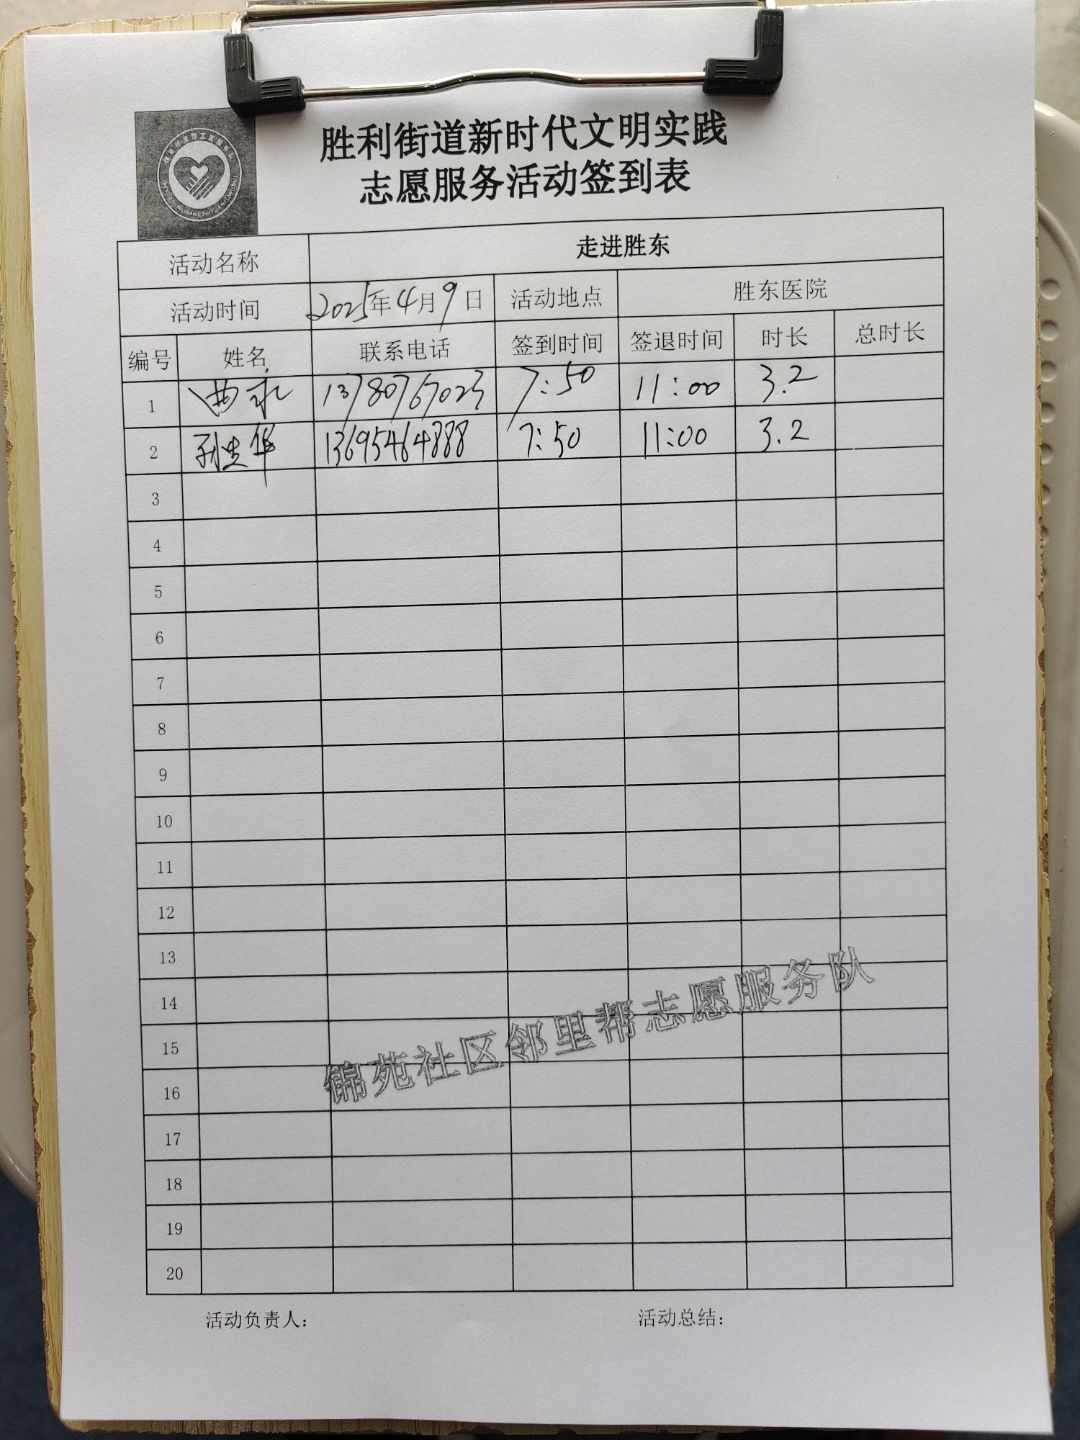 胜利街道新时代文明实践
志愿服务活动签到表
活动名称 走进胜东
活动时间 2025年4月9日 活动地点 胜东医院
编号 姓名 联系电话 签到时间 签退时间 时长 总时长
1 曲永 13780767023 7:50 11:00 3.2
2 孙生华 13695464888 7:50 11:00 3.2
3
4
5
6
7
8
9
10
11
12
13
14
15
16
17
18
19
20
锦苑社区邻里帮志愿服务队
活动负责人: 活动总结: